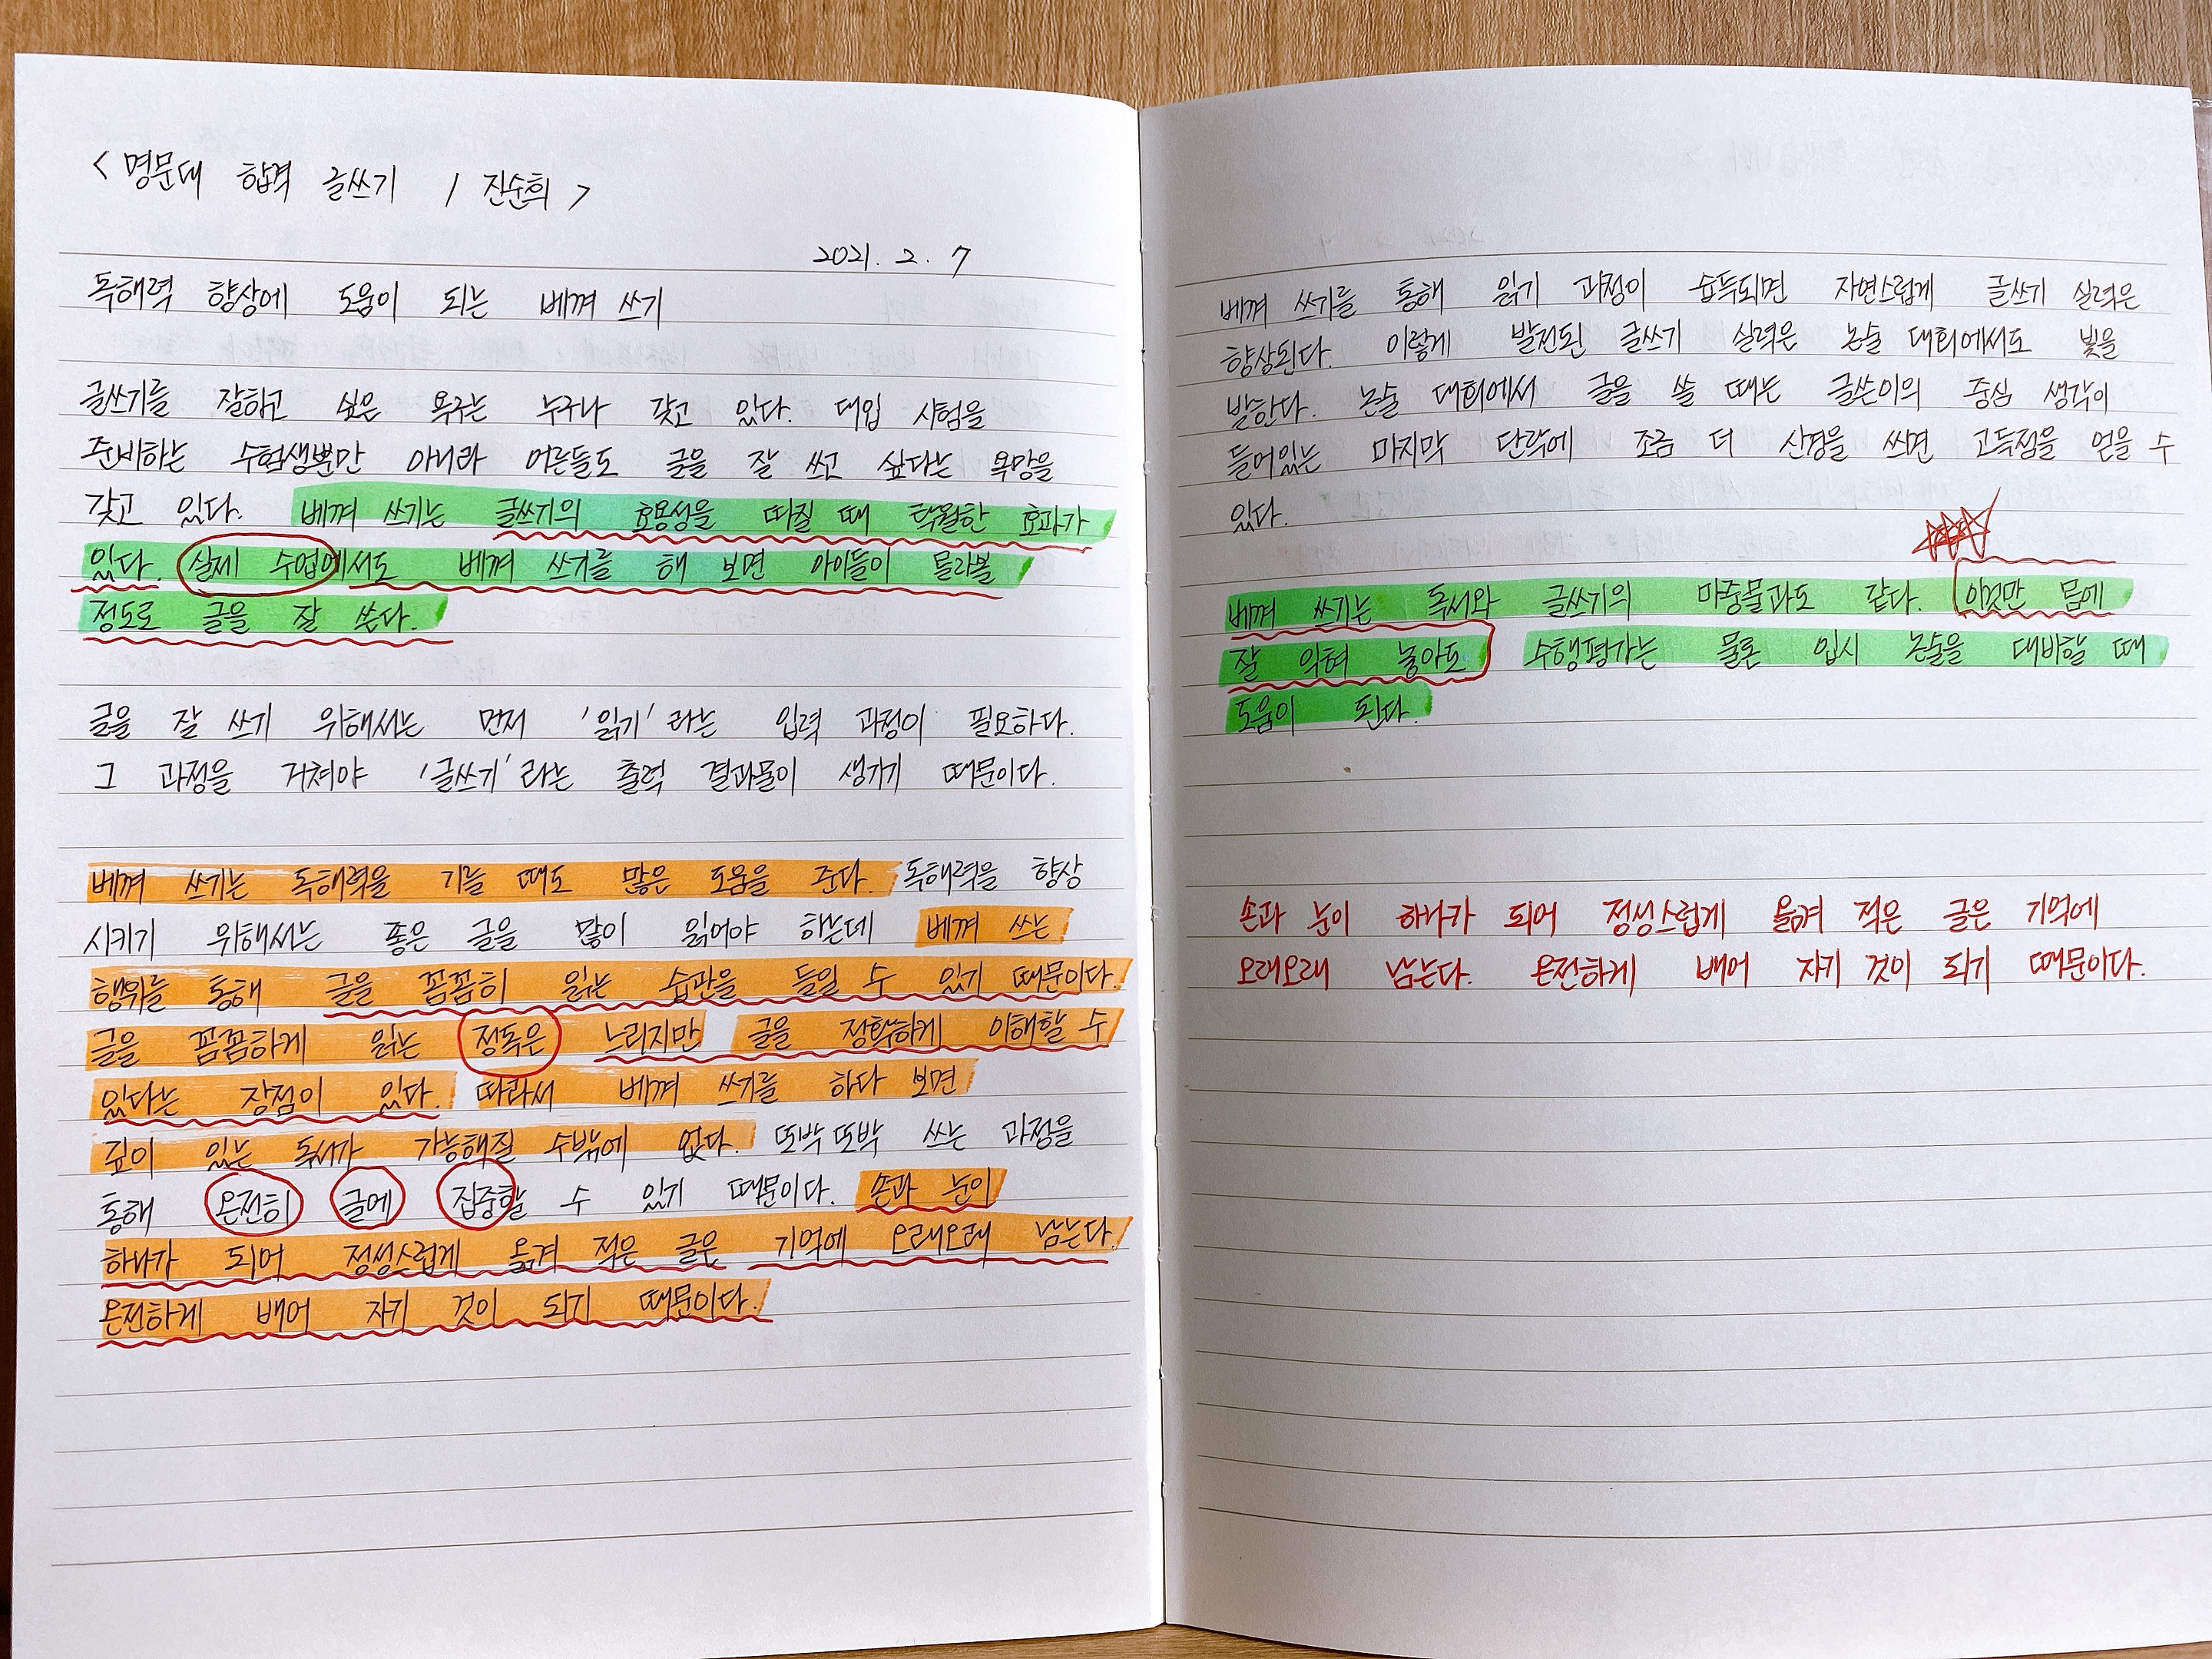 < 명문대 합격 글쓰기 / 진순희 >
2021. 2. 7
독해력 향상에 도움이 되는 베껴 쓰기
글쓰기를 잘하고 싶은 욕구는 누구나 갖고 있다. 대입 시험을
준비하는 수험생뿐만 아니라 어른들도 글을 잘 쓰고 싶다는 욕망을
갖고 있다. 베껴 쓰기는 글쓰기의 효용성을 따질 때 탁월한 효과가
있다. 실제 수업에서도 베껴 쓰기를 해 보면 아이들이 몰라볼
정도로 글을 잘 쓴다.
글을 잘 쓰기 위해서는 먼저 '읽기'라는 입력 과정이 필요하다.
그 과정을 거쳐야 '글쓰기'라는 출력 결과물이 생기기 때문이다.
베껴 쓰기는 독해력을 기를 때도 많은 도움을 준다. 독해력을 향상
시키기 위해서는 좋은 글을 많이 읽어야 하는데 베껴 쓰는
행위를 통해 글을 꼼꼼히 읽는 습관을 들일 수 있기 때문이다.
글을 꼼꼼하게 읽는 정독은 느리지만 글을 정확하게 이해할 수
있다는 장점이 있다. 따라서 베껴 쓰기를 하다 보면
깊이 있는 독서가 가능해질 수밖에 없다. 또박또박 쓰는 과정을
통해 온전히 글에 집중할 수 있기 때문이다. 손과 눈이
하나가 되어 정성스럽게 옮겨 적은 글은 기억에 오래오래 남는다.
온전하게 배어 자기 것이 되기 때문이다.
베껴 쓰기를 통해 읽기 과정이 습득되면 자연스럽게 글쓰기 실력은
향상된다. 이렇게 발전된 글쓰기 실력은 논술 대회에서도 빛을
발한다. 논술 대회에서 글을 쓸 때는 글쓴이의 중심 생각이
들어있는 마지막 단락에 조금 더 신경을 쓰면 고득점을 얻을 수
있다.
베껴 쓰기는 독서와 글쓰기의 마중물과도 같다. 이것만 몸에
잘 익혀 놓아도 수행평가는 물론 입시 논술을 대비할 때
도움이 된다.
손과 눈이 하나가 되어 정성스럽게 옮겨 적은 글은 기억에
오래오래 남는다. 온전하게 배어 자기 것이 되기 때문이다.